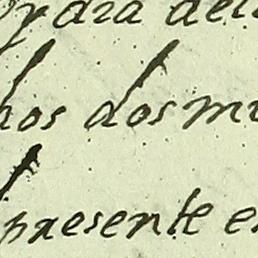 y dia del
hos dos mi
presente e